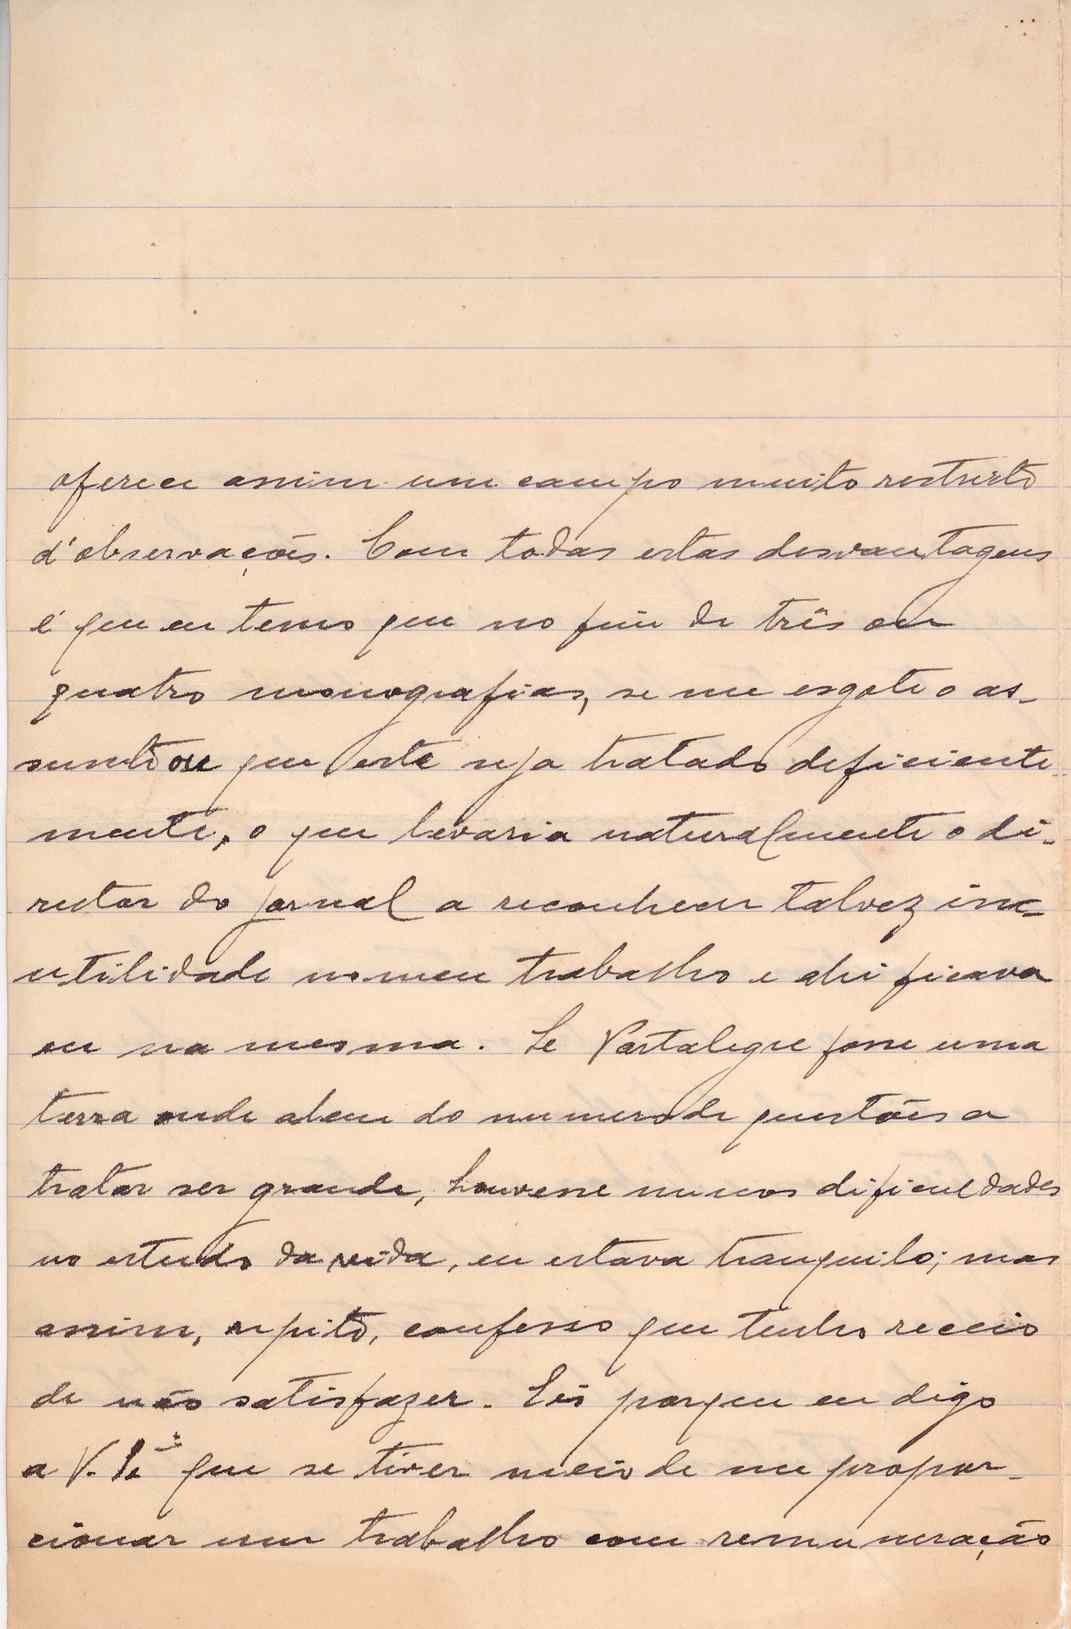 oferece assim um campo muito restricto
d'observações. Com todas estas desvantagens
é que eu temo que no fim de três ou
quatro monografias, se me esgote o as-
sumto ou que este seja tratado deficiente-
mente, o que levaria naturalmente o di-
rector do jornal a reconhecer talvez in-
utilidade no meu trabalho e ahi ficava
eu na mesma. Se Portalegre fosse uma
terra onde alem do numero de questões a
tratar ser grande, houvesse menos dificuldades
no estudo da vida, eu estava tranquilo; mas
assim, repito, confesso que tenho receio
de não satisfazer. Eis porque eu digo
a V. que se tiver meio de me propor-
cionar um trabalho com remuneração